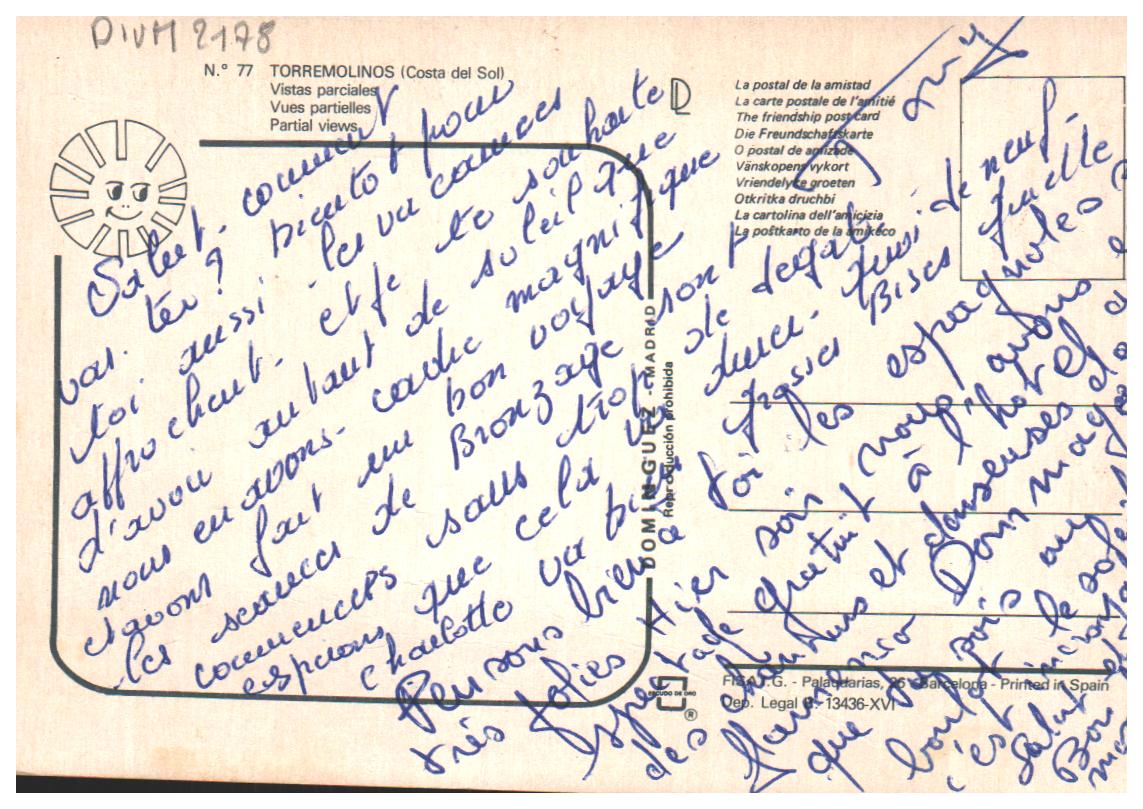 DIVM 2178
N.° 77 TORREMOLINOS (Costa del Sol)
Vistas parciales
Vues partielles
Partial views
La postal de la amistad
La carte postale de l'amitié
The friendship post card
Die Freundschaftskarte
O postal de amizade
Vänskopens vykort
Vriendelyke groeten
Otkritka druchbi
La cartolina dell'amicizia
La postkarto de la amikeco
Salut. comment
vas. tu ? bientot pour
toi aussi les vacances
approchent. et je te souhaite
d'avoir autant de soleil que
nous en avons. cadre magnifique
et avons fait un bon voyage
les seances de Bronzage sont
commencés sans trop de dégats
espérons que cela va durer.
Charlotte va bien quoi de neuf.
Pensons bien à toi Bises
très jolies les espagnoles
Hier soir nous avons
à l'hotel
gratuit
des chanteurs et danseuses
Flamenco Dommage
que
c'est le soleil
Salut
Bon
DOMINGUEZ - MADRID
Reproducción prohibida
ESCUDO DE ORO
®
FISA I.G. - Palaudarias, 26 - Barcelona - Printed in Spain
Dep. Legal B. 13436-XVI